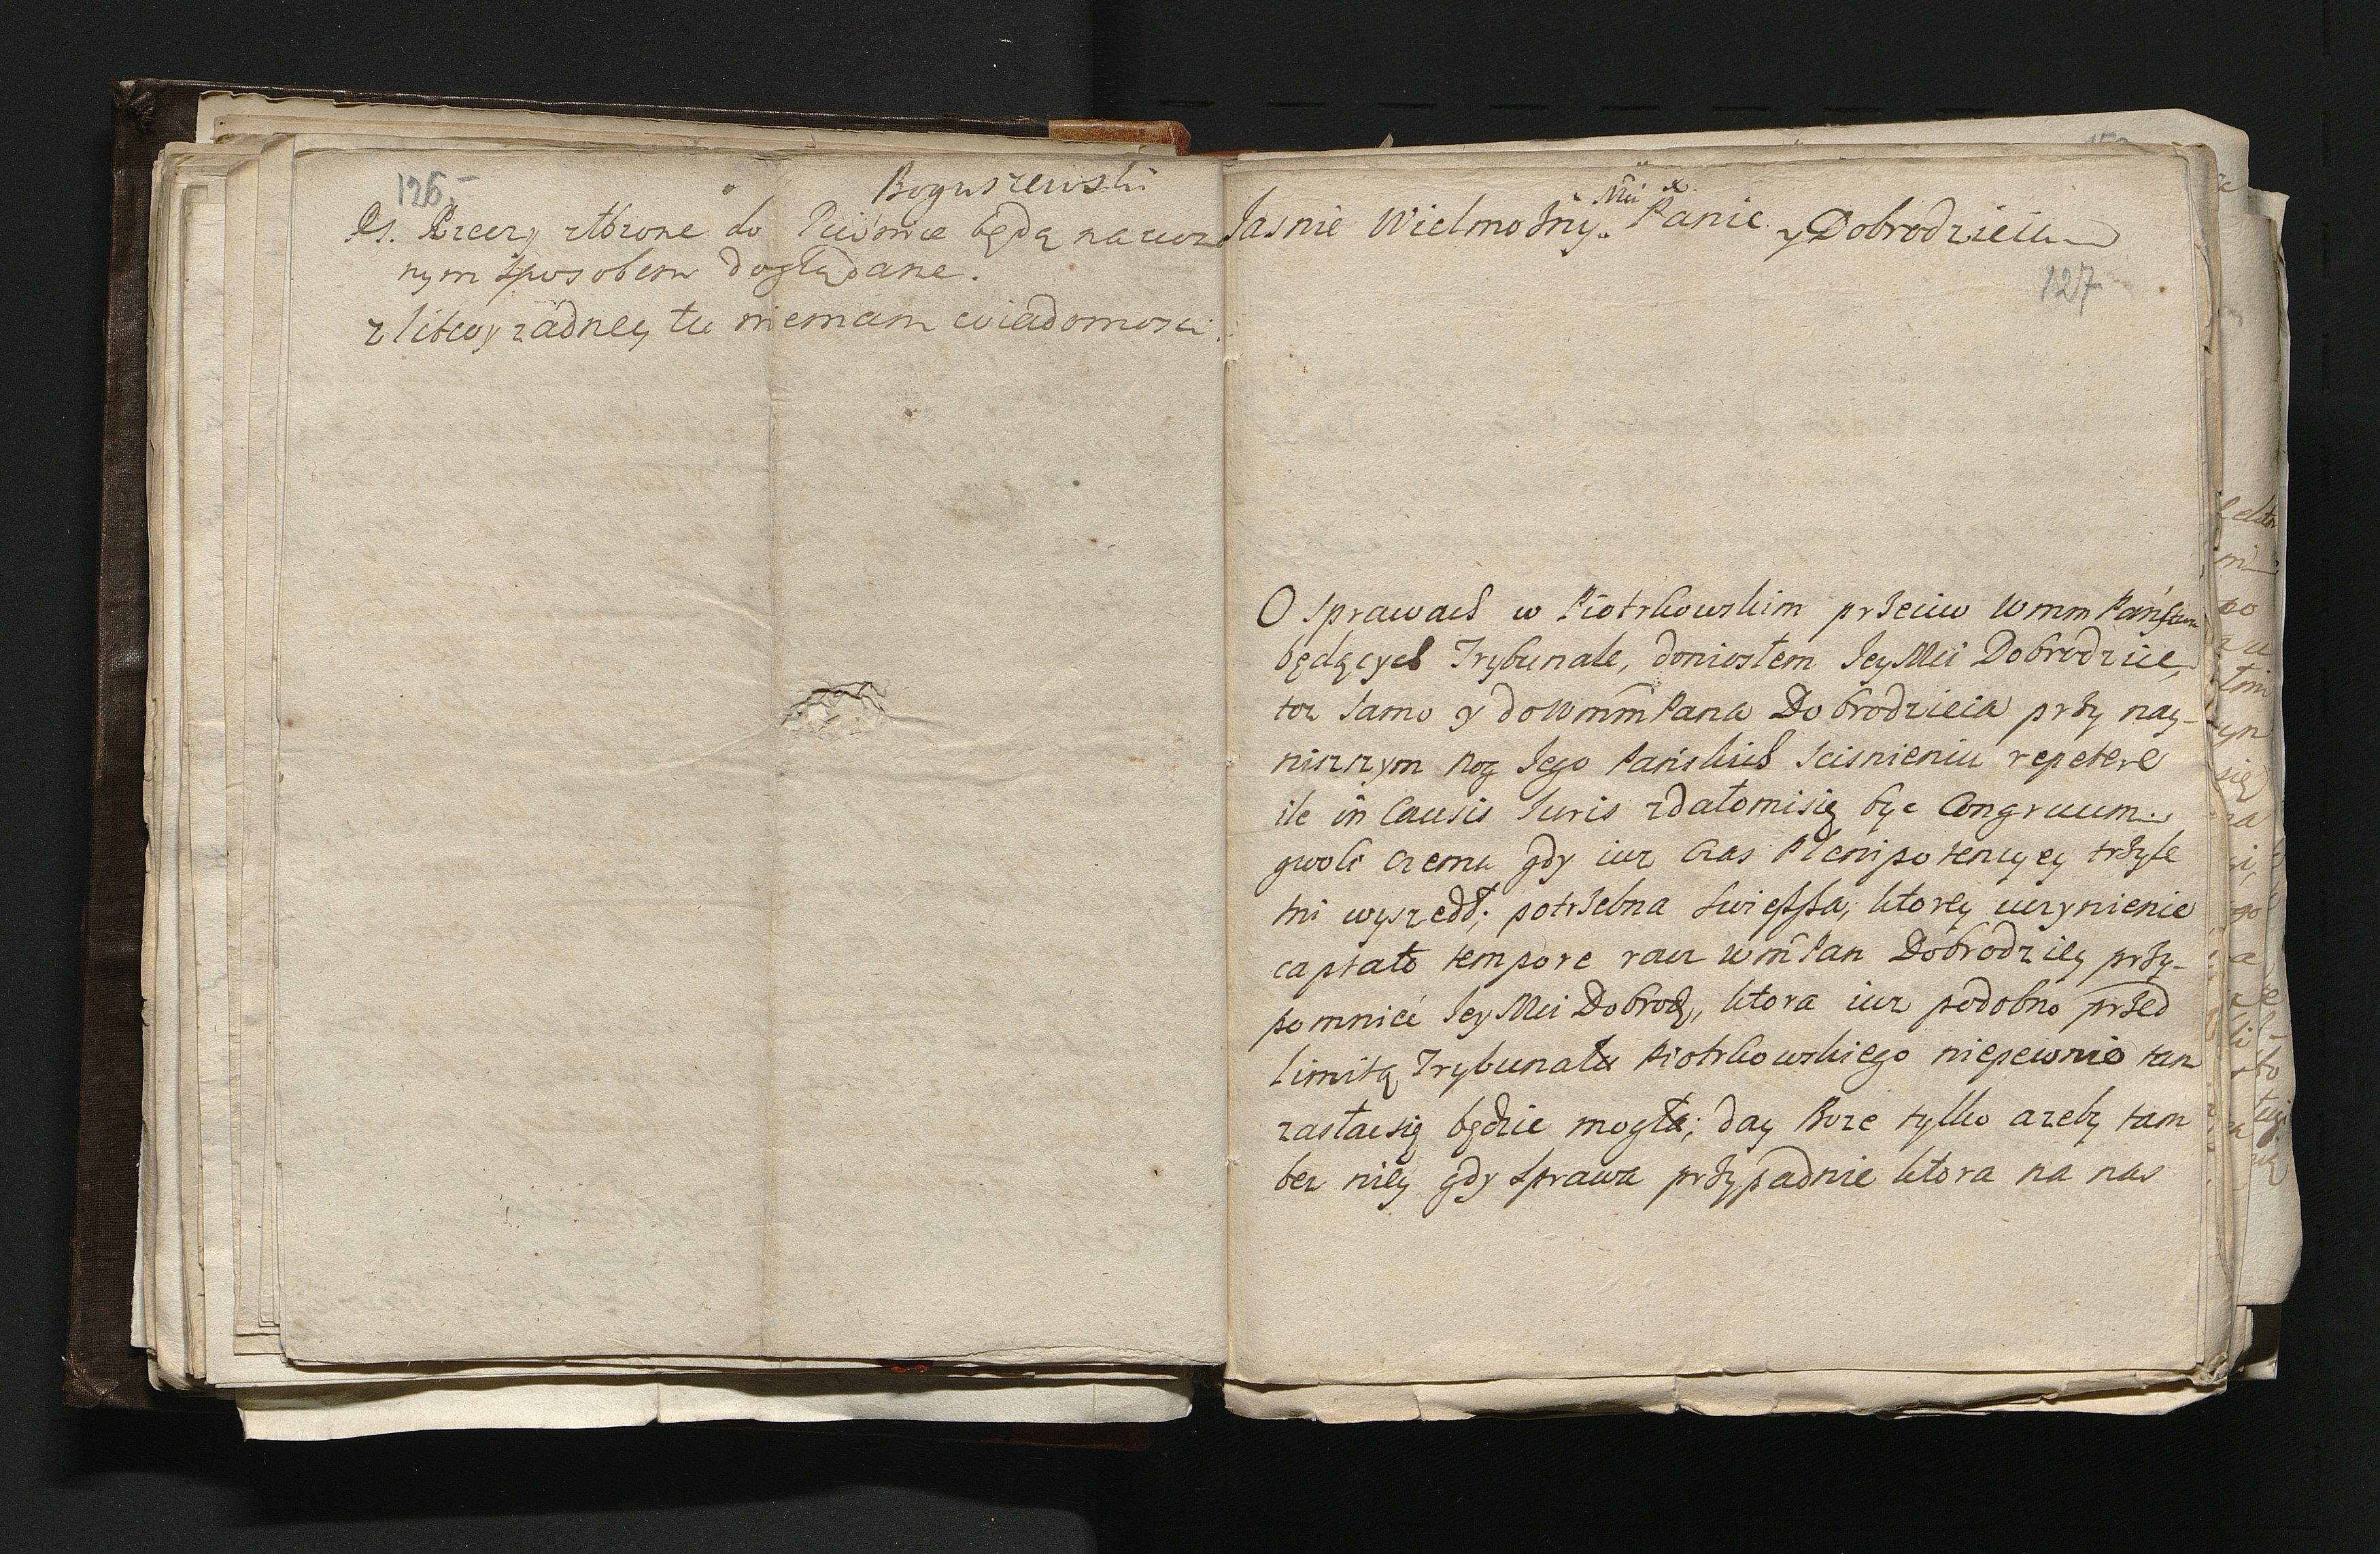 126.
Boguszewski
Ps. Rzeczy złożone do Piwnice będą
nym sposobem doglądane.
z litwy żadney tu niemam wiadomosci.
Jasnie Wielmożny Mci Panie y Dobrodzieiu
127
O sprawach w Piotrkowskim przeciw wmm Państwu
będących Trybunale, doniosłem Jey Mci Dobrodzice,
toz samo y do wmm Pana Dobrodzieia przy nay-
niszszym nog Jego Pańskich scisnieniu repetere
ile in Causis Juris zdałomisię byc Congruum.
gwoli czemu gdy iuz Czas Plenipotencyey trzyle
tni wyszedł; potrzebna swieższa, ktorey uczynienie
captato tempore racz wm Pan Dobrodziey przy-
pomnieć Jey Mci Dobrodz, ktora iuz podobno przed
limitą Trybunału Piotrkowskiego niepewnie tam
zastacsię będzie mogła; day Boze tylko azeby tam
bez niey gdy sprawa przypadnie ktora na nas